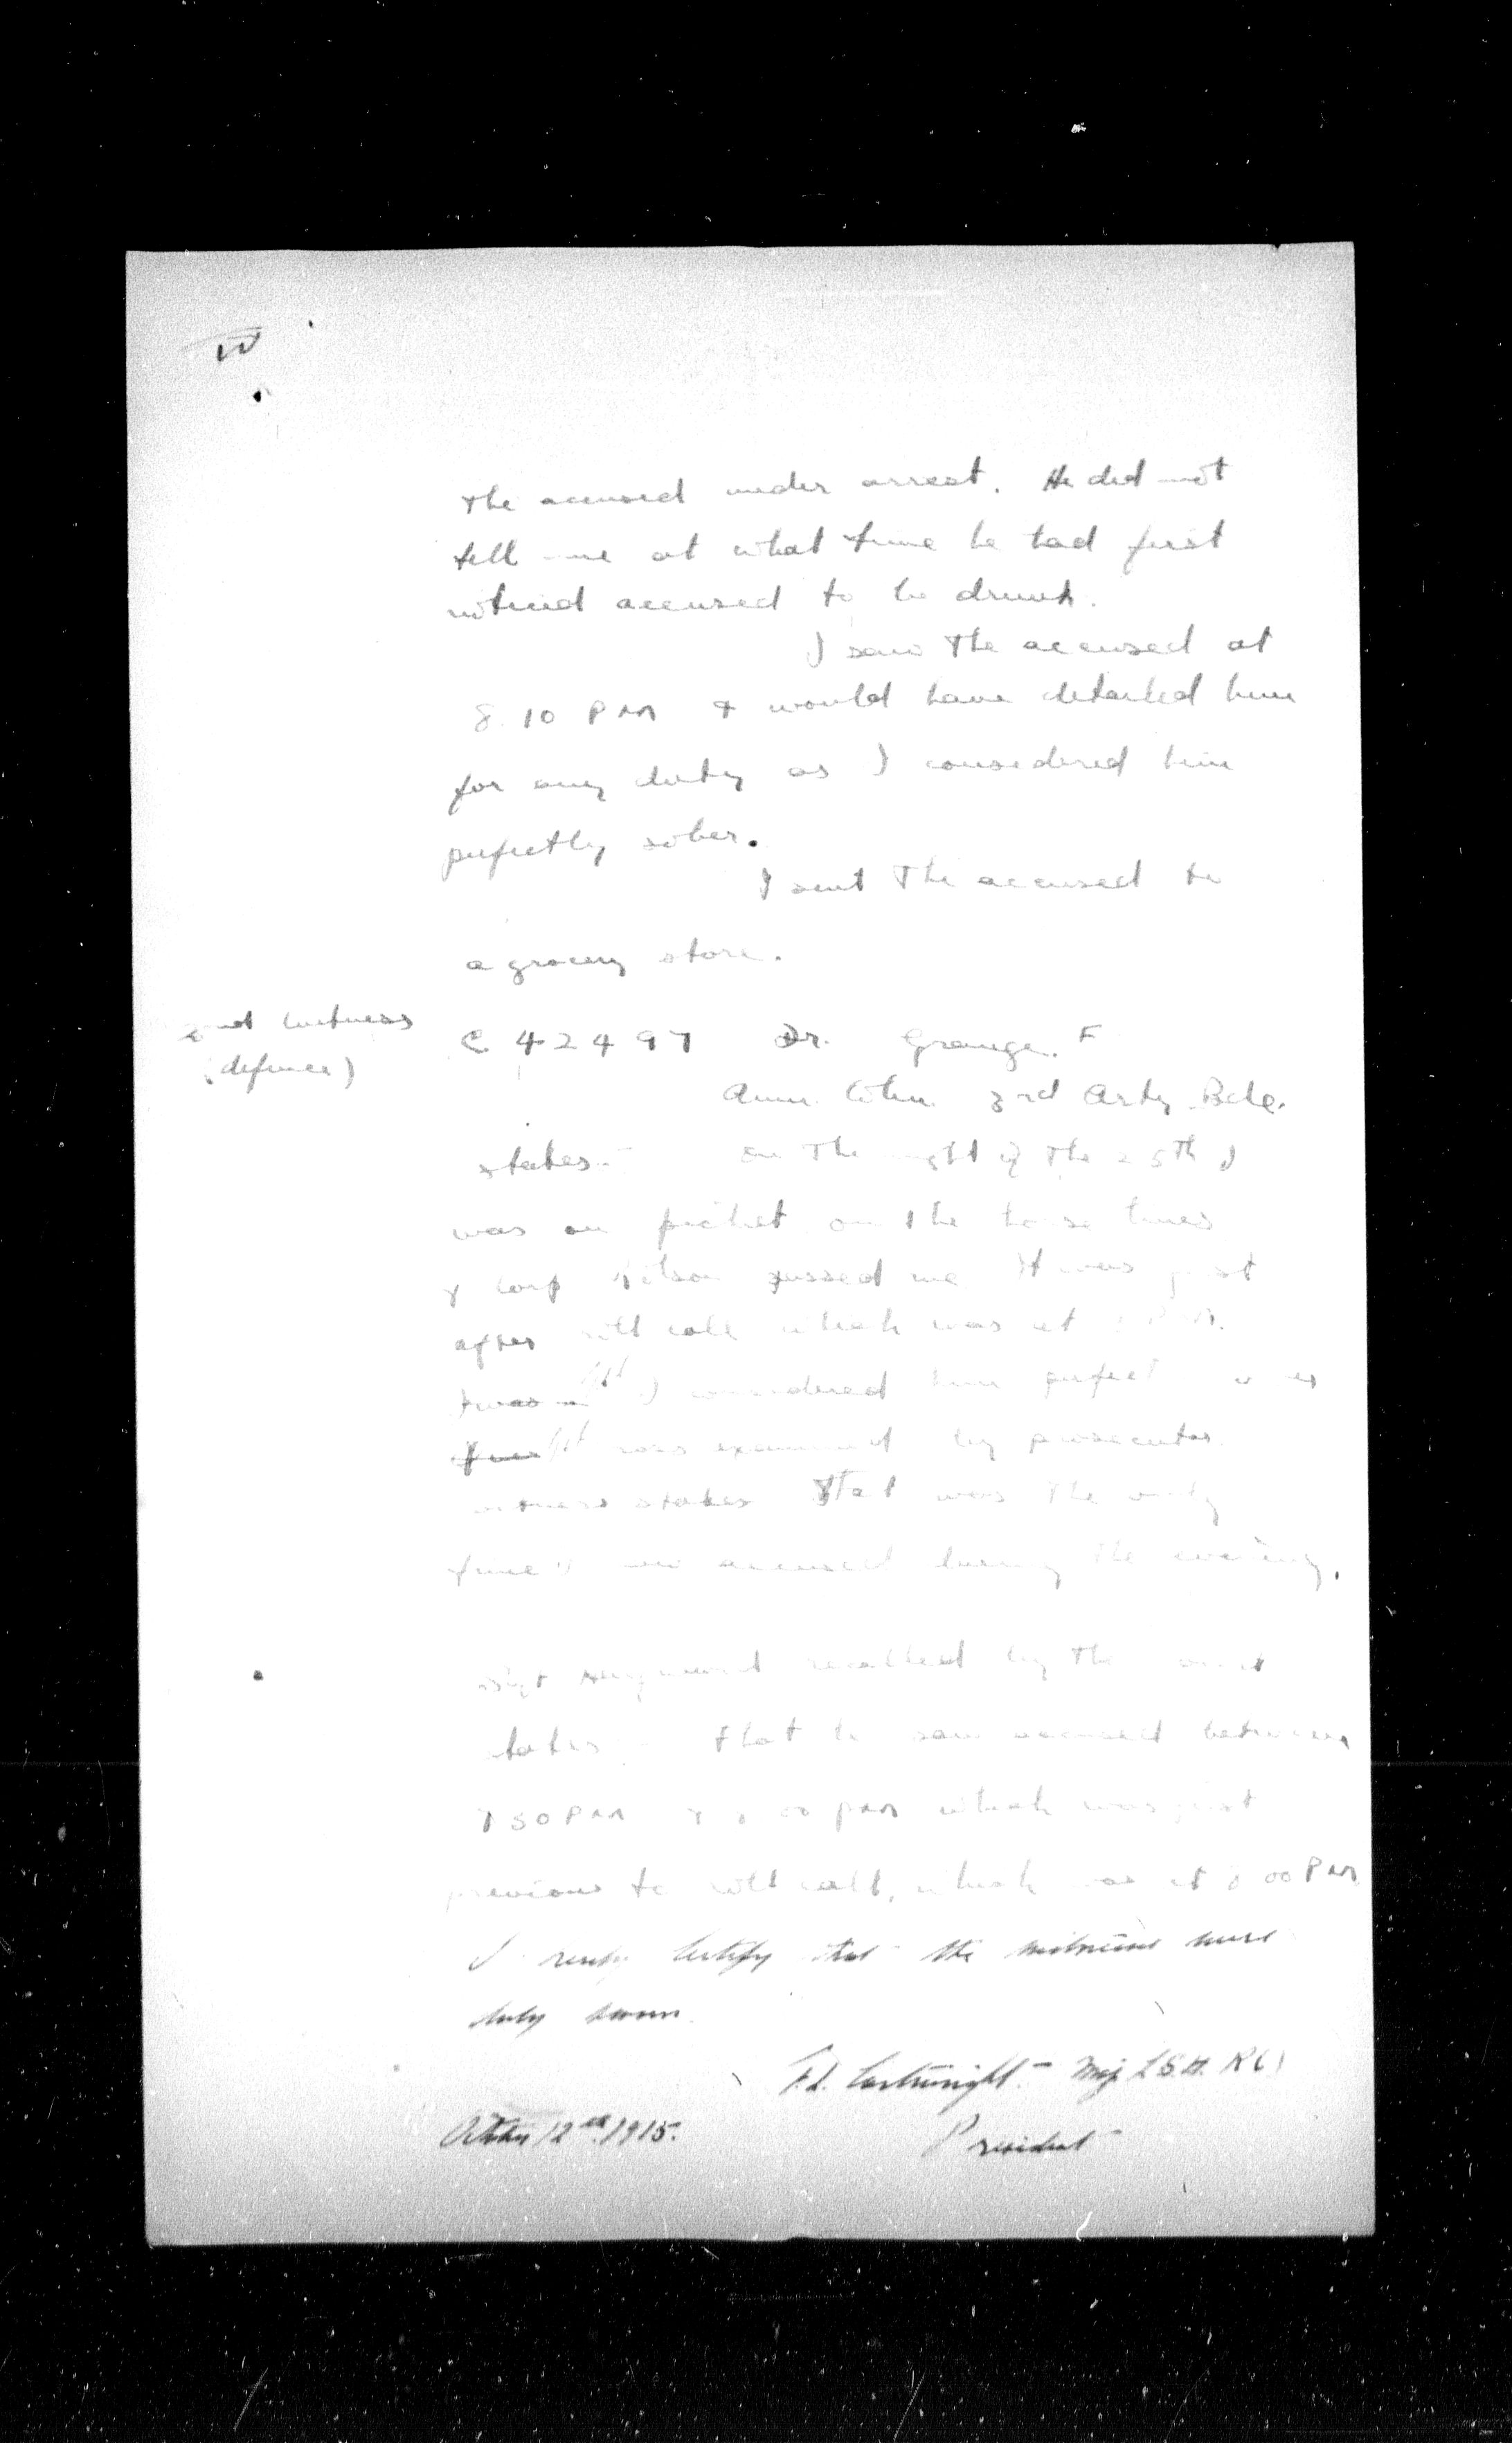 IV
the accused under arrest. He did not
tell me at what time he had first
noticed accused to be drunk.
I saw the accused at
8.10 PM & would have detailed him
for any duty as I considered him
perfectly sober.
I sent the accused to
a grocery store.
2nd Witness
(defence)
C 42497 Dr. Grange. F
Amm. Coln. 3rd Arty Bde.
states:- On the night of the 25th I
was on picket on the horse lines
& Corp passed me It was just
after roll call which was at
I considered him
was examined by prosecutor
witness states that was the only
time I saw accused during the evening.
Sgt recalled by the court
states that he saw accused between
7 50 PM & 8.00 PM which was just
previous to roll call, which was at 8 00 PM
I certify that the were
duly sworn.
F.L. Cartwright - Maj L.S.H. R.C)
October 12th 1915.
President